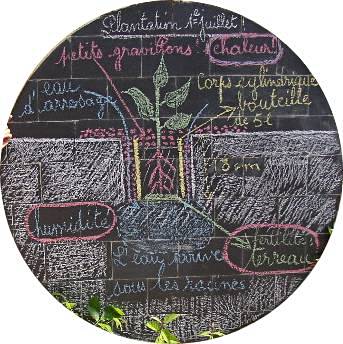 Plantation 1er juillet
petits gravillons
chaleur
Corps cylindrique
bouteille
de 5 l
eau
d'arrosage
13 cm
humidité
fertilité :
terreau
L'eau arrive
sous les racines